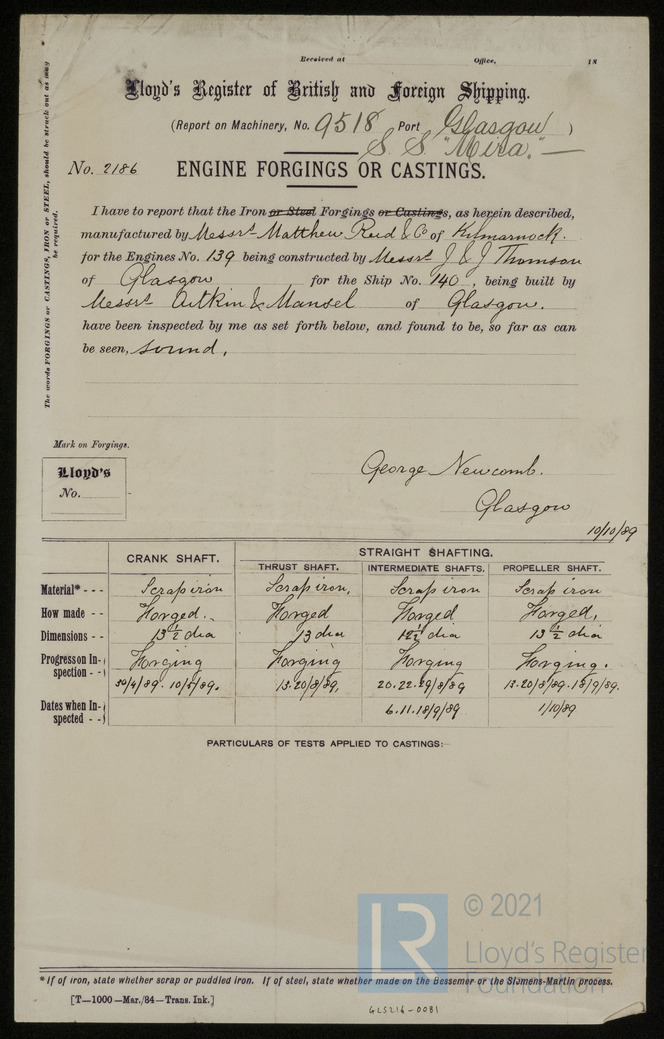 Received at Office, 18
Lloyd's Register of British and Foreign Shipping.
(Report on Machinery, No. 9518 Port Glasgow )
S. S "Mira."
No. 2186 ENGINE FORGINGS OR CASTINGS.
The words FORGINGS or CASTINGS, IRON or STEEL, should be struck out as may be required.
I have to report that the Iron or Steel Forgings or Castings, as herein described,
manufactured by Messrs Matthew Reid & Co of Kilmarnock.
for the Engines No. 139 being constructed by Messrs J & J Thomson
of Glasgow for the Ship No. 140, being built by
Messrs Aitkin & Mansel of Glasgow.
have been inspected by me as set forth below, and found to be, so far as can
be seen, sound.
Mark on Forgings.
Lloyd's
No.
George Newcomb.
Glasgow
10/10/89
CRANK SHAFT. STRAIGHT SHAFTING.
THRUST SHAFT. INTERMEDIATE SHAFTS. PROPELLER SHAFT.
Material* - - - Scrap iron Scrap iron, Scrap iron Scrap iron
How made - - Forged. Forged Forged Forged,
Dimensions - - 13 1/2 dia 13 dia 12 1/2 dia 13 1/2 dia
Progress on Inspection - - Forging Forging Forging Forging.
Dates when Inspected - - 30/4/89. 10/5/89. 13.20/8/89, 20.22.29/8/89 13.20/8/89.18/9/89.
6.11.18/9/89 1/10/89
PARTICULARS OF TESTS APPLIED TO CASTINGS:—
© 2021
LR
Lloyd's Register
Foundation
* If of iron, state whether scrap or puddled iron. If of steel, state whether made on the Bessemer or the Siemens-Martin process.
[T—1000—Mar./84—Trans. Ink.]
GLS216-0081